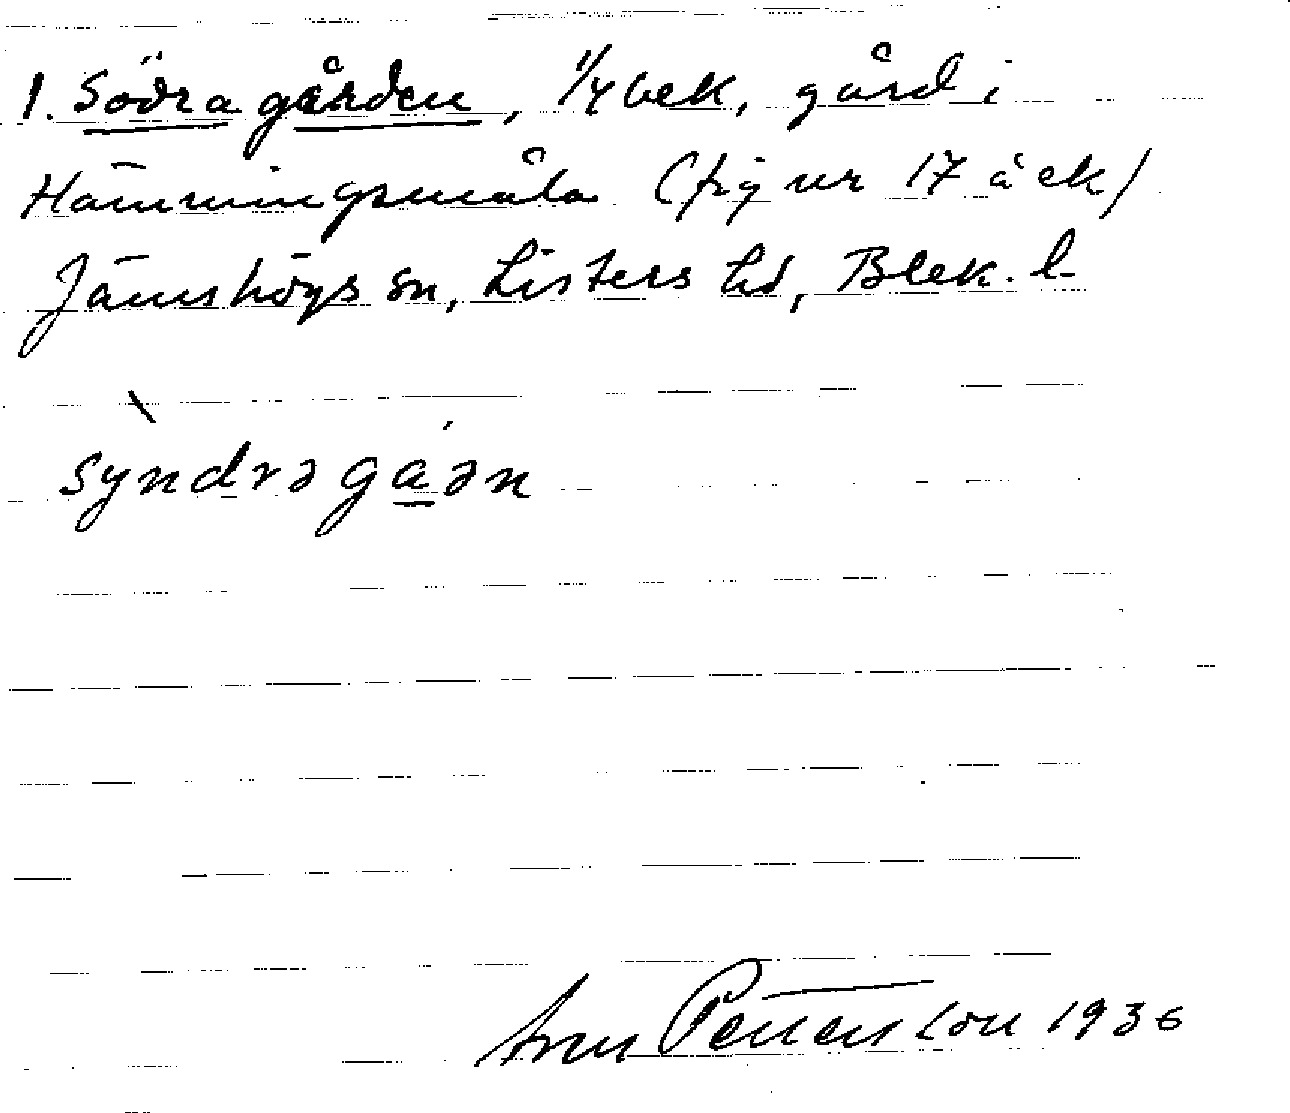 1. Södra gården, 1/4 bek, gård i
Hämmingsmåla (fig nr 17 å ek)
Jämshögs sn, Listers hd, Blek. l.
syndrəgaən
Pettersson 1936